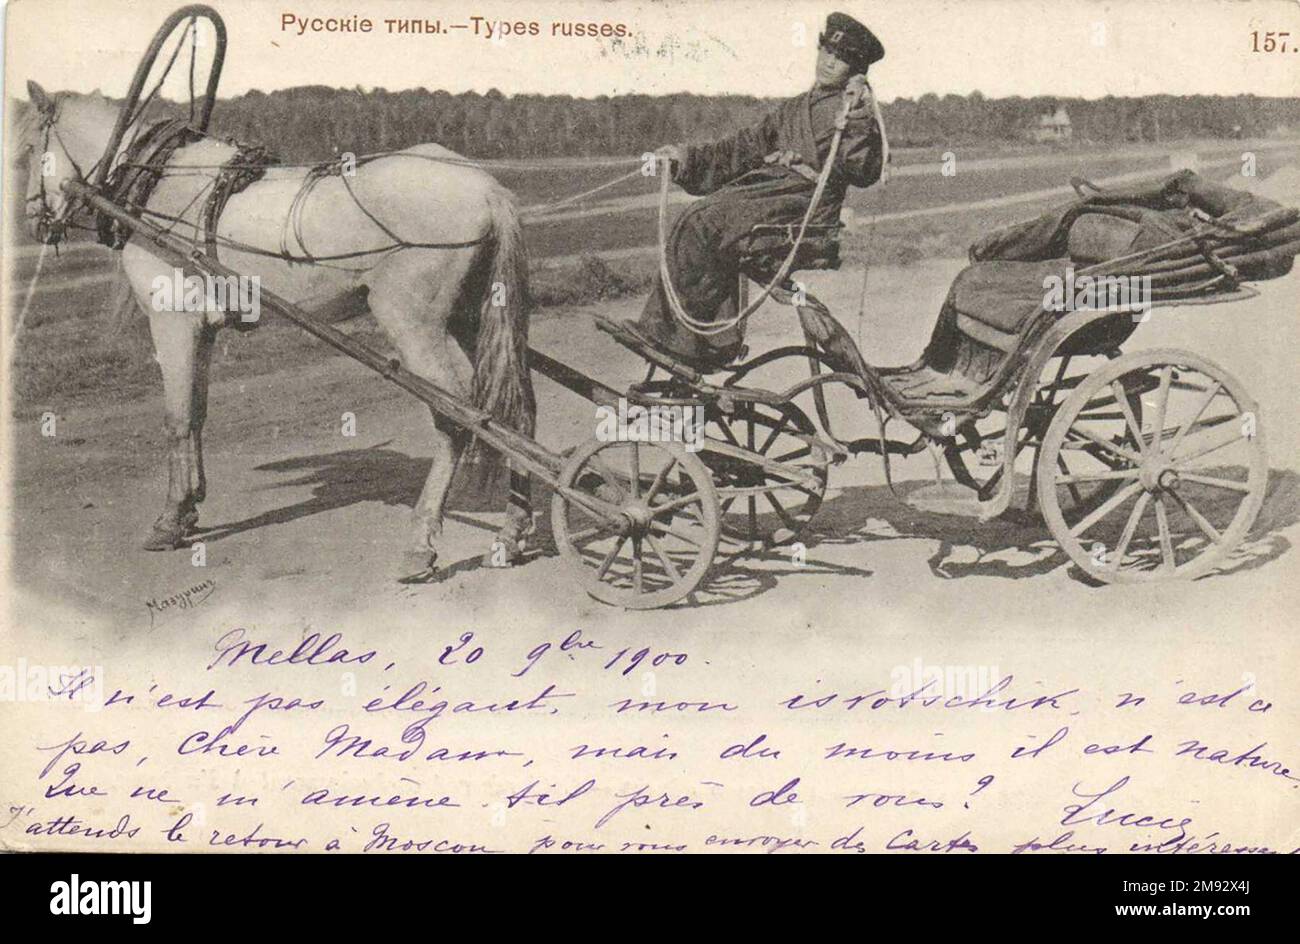 Русскіе типы.—Types russes.
157.
Мазуринъ
Mellas, 20 9bre 1900.
Il n'est pas élégant, mon isvotschik, n'est ce
pas, chère Madame, mais du moins il est nature.
Que ne m'amène-t-il près de vous? Lucie
J'attends le retour à Moscou pour vous envoyer des cartes plus intéressan
alamy
alamy
Image ID: 2M92X4J
www.alamy.com